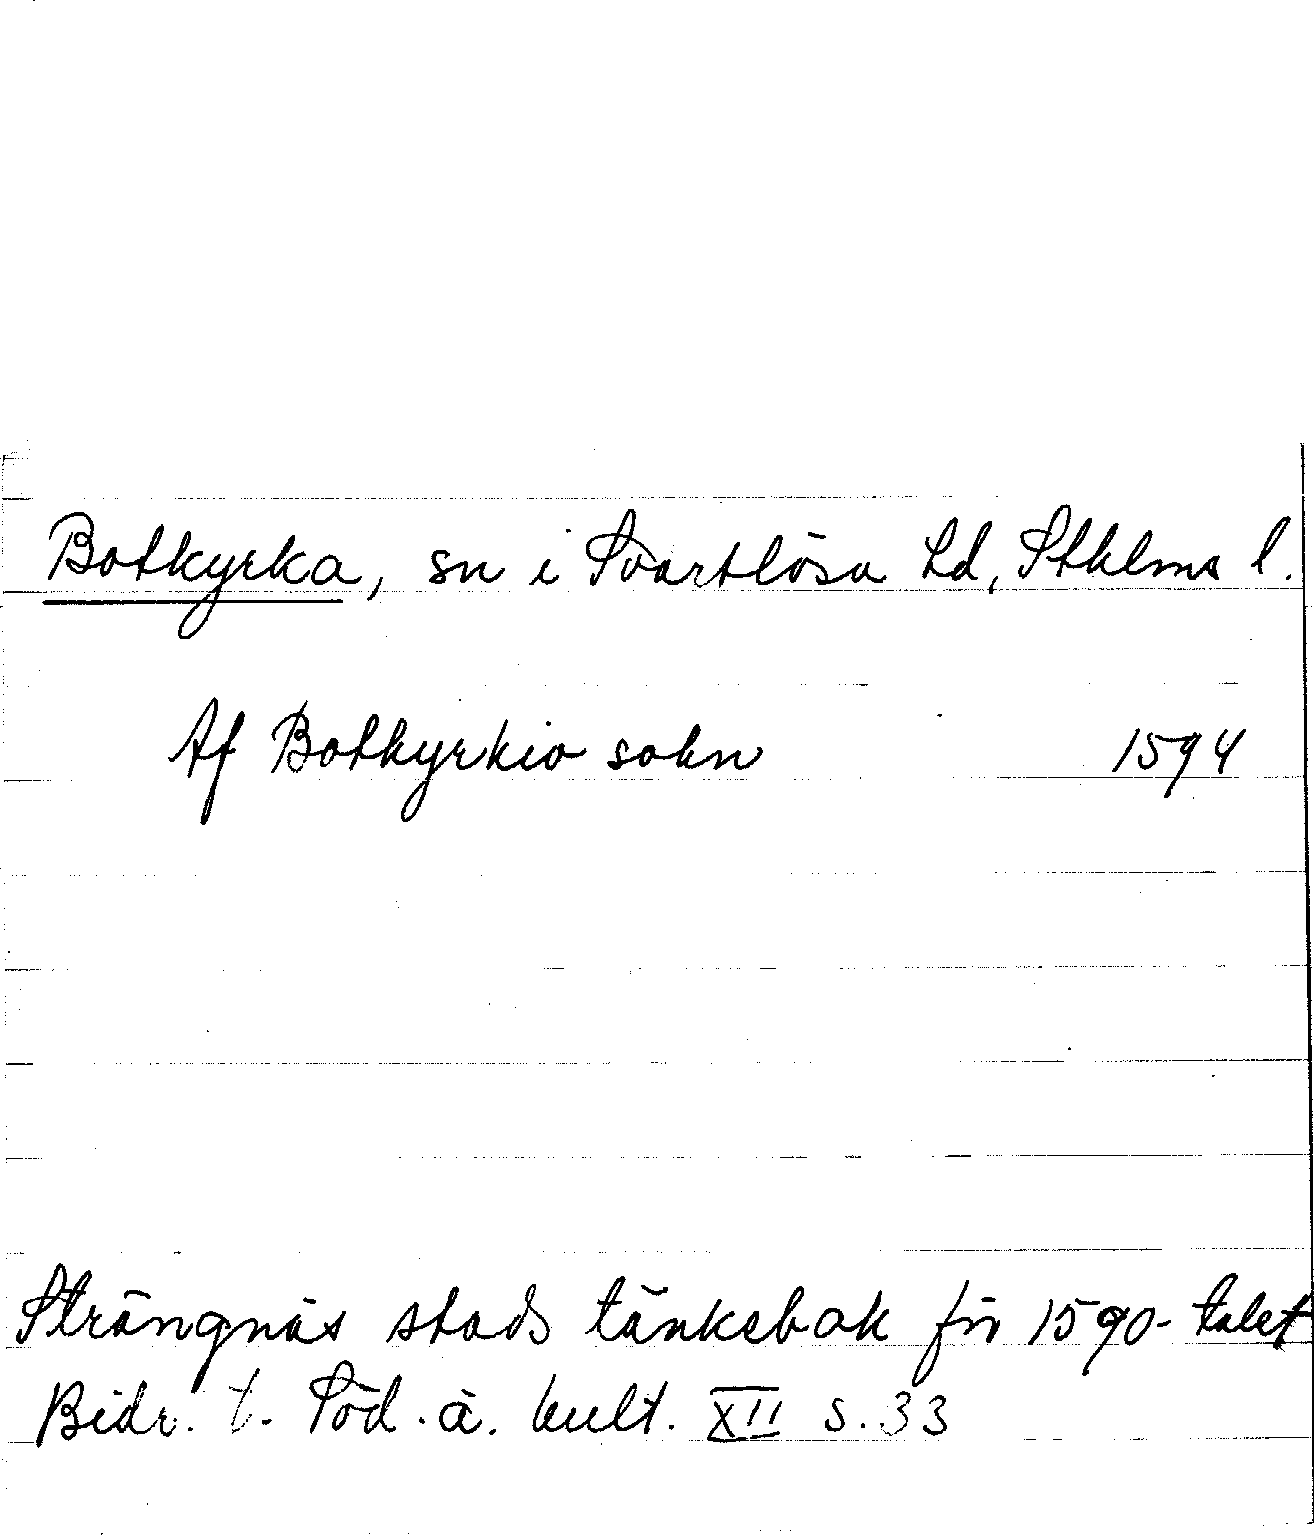 Botkyrka, sn i Svartlösa hd, Sthlms l.
Af Botkyrkio sokn 1594
Strängnäs stads tänkebok för 1590-talet
Bidr. t. Söd. ä. kult. XII s. 33